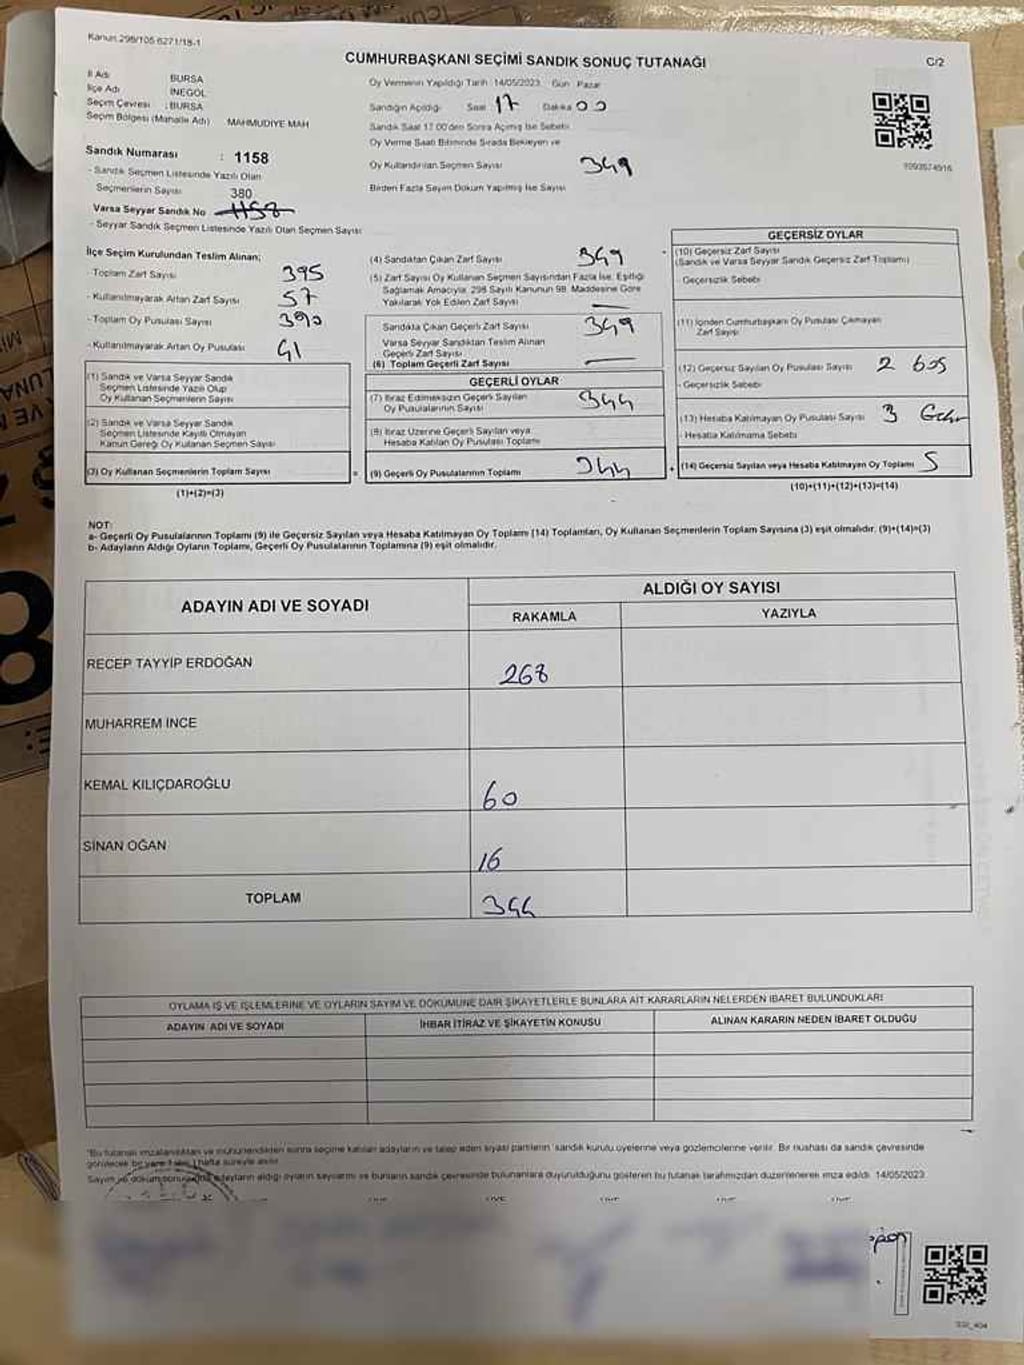 Kanun 298/105 6271/18-1
CUMHURBAŞKANI SEÇİMİ SANDIK SONUÇ TUTANAĞI
C/2
İl Adı BURSA
İlçe Adı İNEGÖL
Seçim Çevresi : BURSA
Seçim Bölgesi (Mahalle Adı) MAHMUDİYE MAH
Sandık Numarası : 1158
- Sandık Seçmen Listesinde Yazılı Olan
Seçmenlerin Sayısı 380
Varsa Seyyar Sandık No 1158
- Seyyar Sandık Seçmen Listesinde Yazılı Olan Seçmen Sayısı
Oy Vermenin Yapıldığı Tarih 14/05/2023 Gün Pazar
Sandığın Açıldığı Saat 17 Dakika 00
Sandık Saat 17.00'den Sonra Açılmış İse Sebebi
Oy Verme Saati Bitiminde Sırada Bekleyen ve
Oy Kullandırılan Seçmen Sayısı 349
Birden Fazla Sayım Döküm Yapılmış İse Sayısı
İlçe Seçim Kurulundan Teslim Alınan;
- Toplam Zarf Sayısı 395
- Kullanılmayarak Artan Zarf Sayısı 57
- Toplam Oy Pusulası Sayısı 390
- Kullanılmayarak Artan Oy Pusulası 41
(1) Sandık ve Varsa Seyyar Sandık
Seçmen Listesinde Yazılı Olup
Oy Kullanan Seçmenlerin Sayısı
(2) Sandık ve Varsa Seyyar Sandık
Seçmen Listesinde Kayıtlı Olmayan
Kanun Gereği Oy Kullanan Seçmen Sayısı
(3) Oy Kullanan Seçmenlerin Toplam Sayısı
(1)+(2)=(3)
(4) Sandıktan Çıkan Zarf Sayısı 349
(5) Zarf Sayısı Oy Kullanan Seçmen Sayısından Fazla İse, Eşitliği
Sağlamak Amacıyla, 298 Sayılı Kanunun 98. Maddesine Göre
Yakılarak Yok Edilen Zarf Sayısı —
Sandıkta Çıkan Geçerli Zarf Sayısı 349
Varsa Seyyar Sandıktan Teslim Alınan
Geçerli Zarf Sayısı —
(6) Toplam Geçerli Zarf Sayısı
GEÇERLİ OYLAR
(7) İtiraz Edilmeksizin Geçerli Sayılan
Oy Pusulalarının Sayısı 344
(8) İtiraz Üzerine Geçerli Sayılan veya
Hesaba Katılan Oy Pusulası Toplamı
= (9) Geçerli Oy Pusulalarının Toplamı 344
GEÇERSİZ OYLAR
(10) Geçersiz Zarf Sayısı
(Sandık ve Varsa Seyyar Sandık Geçersiz Zarf Toplamı)
- Geçersizlik Sebebi
(11) İçinden Cumhurbaşkanı Oy Pusulası Çıkmayan
Zarf Sayısı
(12) Geçersiz Sayılan Oy Pusulası Sayısı 2 boş
- Geçersizlik Sebebi
(13) Hesaba Katılmayan Oy Pusulası Sayısı 3
- Hesaba Katılmama Sebebi
+ (14) Geçersiz Sayılan veya Hesaba Katılmayan Oy Toplamı 5
(10)+(11)+(12)+(13)=(14)
NOT:
a- Geçerli Oy Pusulalarının Toplamı (9) ile Geçersiz Sayılan veya Hesaba Katılmayan Oy Toplamı (14) Toplamları, Oy Kullanan Seçmenlerin Toplam Sayısına (3) eşit olmalıdır. (9)+(14)=(3)
b- Adayların Aldığı Oyların Toplamı, Geçerli Oy Pusulalarının Toplamına (9) eşit olmalıdır.
ADAYIN ADI VE SOYADI
ALDIĞI OY SAYISI
RAKAMLA YAZIYLA
RECEP TAYYİP ERDOĞAN 268
MUHARREM İNCE
KEMAL KILIÇDAROĞLU 60
SİNAN OĞAN 16
TOPLAM 344
OYLAMA İŞ VE İŞLEMLERİNE VE OYLARIN SAYIM VE DÖKÜMÜNE DAİR ŞİKAYETLERLE BUNLARA AİT KARARLARIN NELERDEN İBARET BULUNDUKLARI
ADAYIN ADI VE SOYADI İHBAR İTİRAZ VE ŞİKAYETİN KONUSU ALINAN KARARIN NEDEN İBARET OLDUĞU
*Bu tutanak imzalandıktan ve mühürlendikten sonra seçime katılan adayların ve talep eden siyasi partilerin sandık kurulu üyelerine veya gözlemcilerine verilir. Bir nüshası da sandık çevresinde
görülecek bir yere 1 (bir) hafta süreyle asılır.
Sayım ve döküm sonucunda adayların aldığı oyların sayılarını ve bunların sandık çevresinde bulunanlara duyurulduğunu gösteren bu tutanak tarafımızdan düzenlenerek imza edildi. 14/05/2023